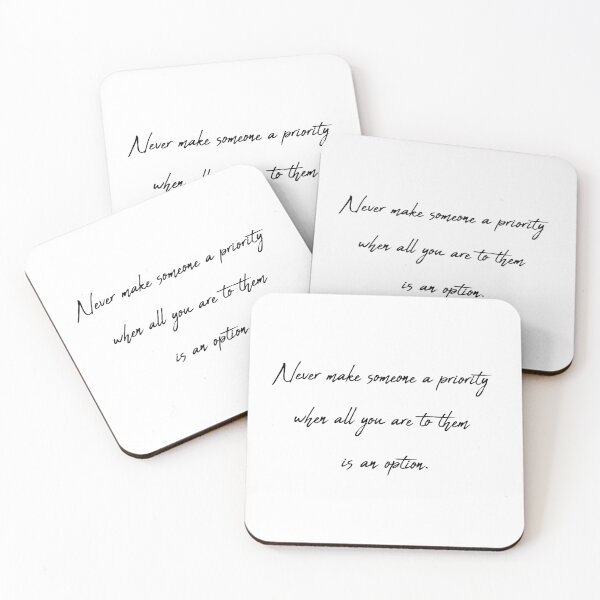 Never make someone a priority
when all to them
Never make someone a priority
when all you are to them
is an option.
Never make someone a priority
when all you are to them
is an option
Never make someone a priority
when all you are to them
is an option.